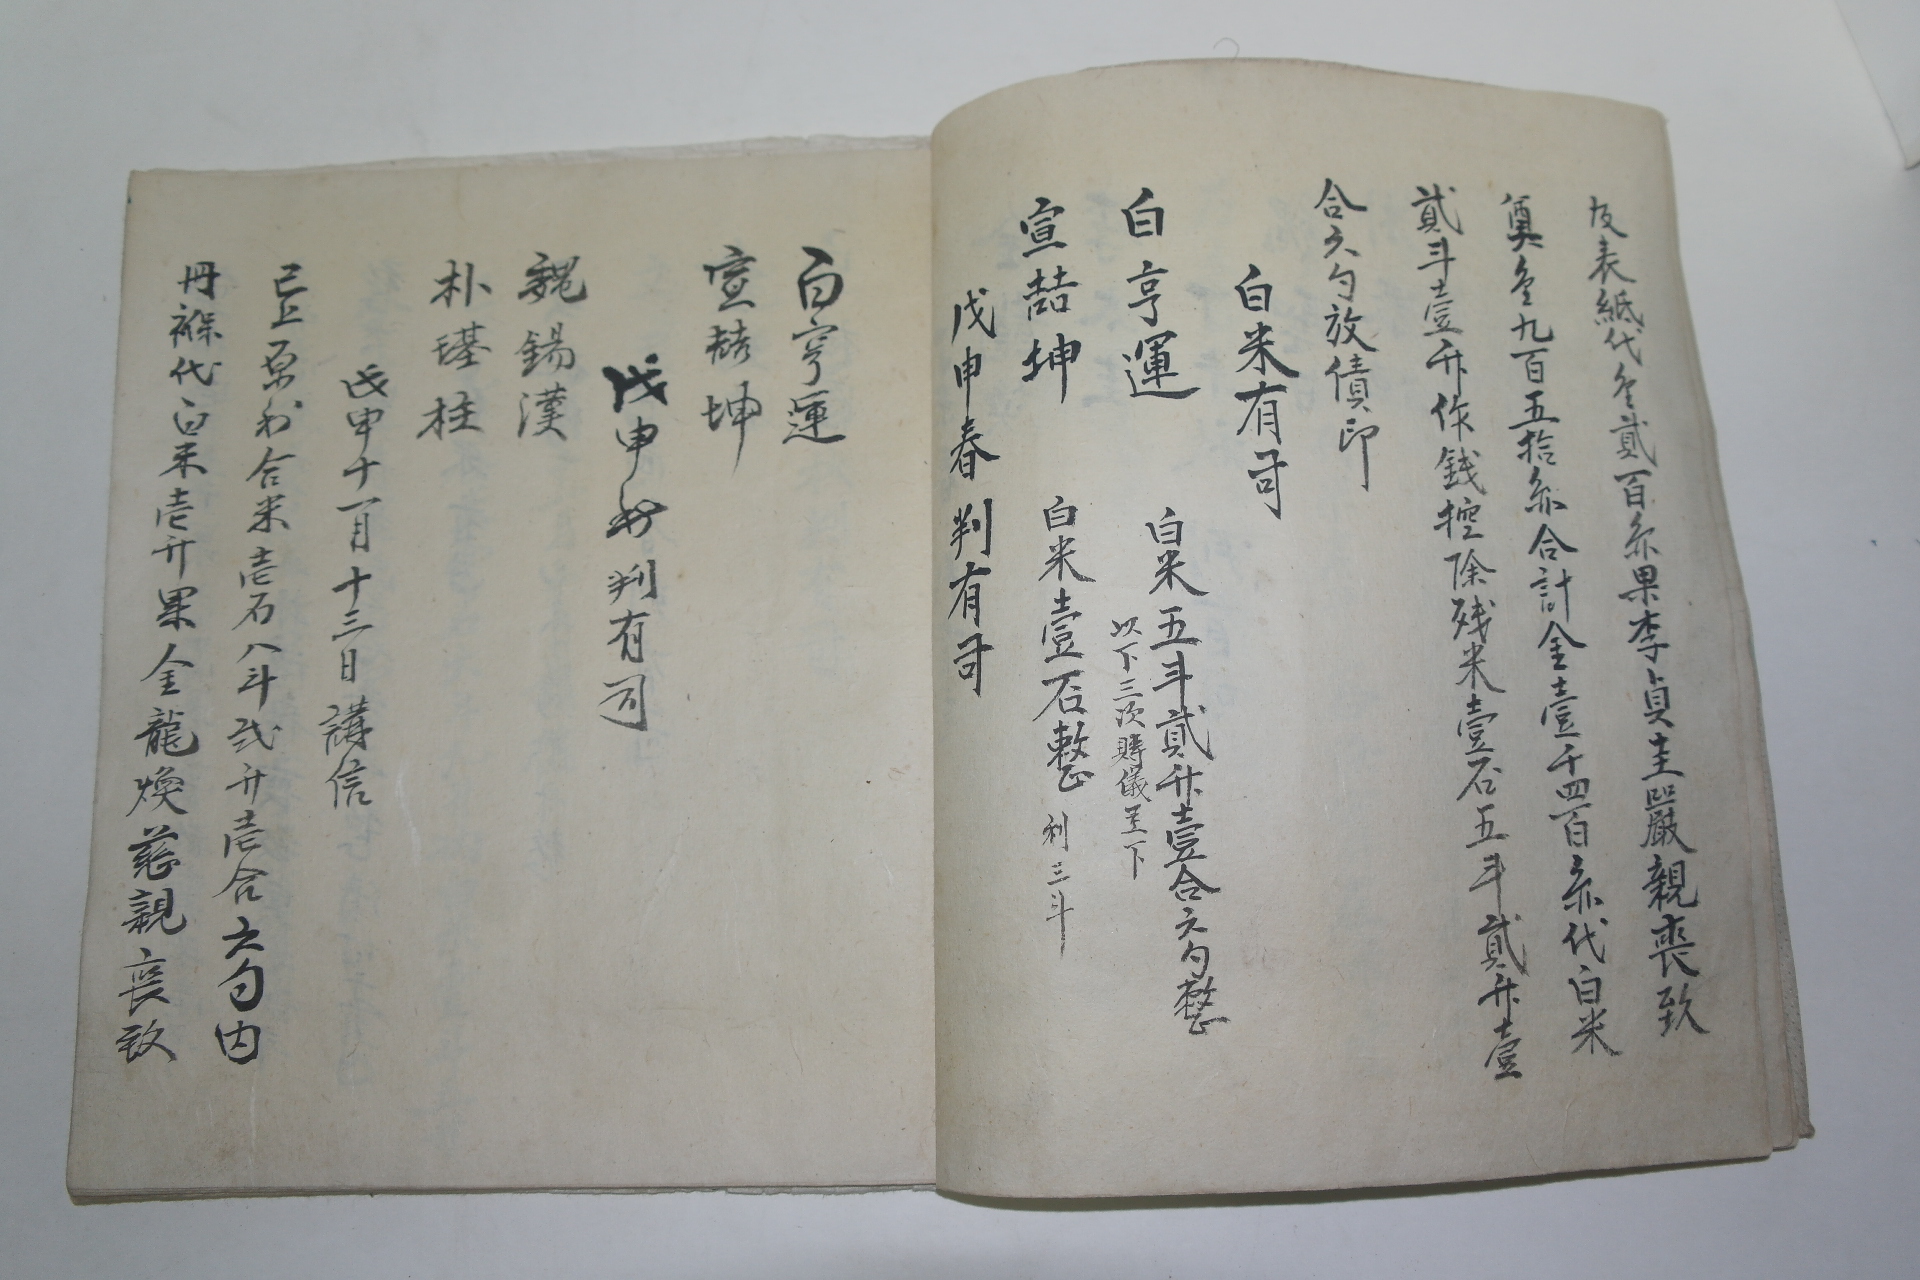 及表紙代金貳百糸果李貞圭嚴親喪致
奠金九百五拾糸合計金壹千四百糸代白米
貳斗壹升作錢控除残米壹石五斗貳升壹
合六勺放債印
白米有司
白亨運 白米五斗貳升壹合六勺整
以下三次賻儀至下
宣喆坤 白米壹石整 利三斗
戊申春判有司
白亨運
宣喆坤
戊申秋判有司
魏錫漢
朴璂柱
戊申十一月十三日講信
已上原利合米壱石八斗弍升壱合六勺内
冊褓代白米壱升果金龍煥慈親喪致